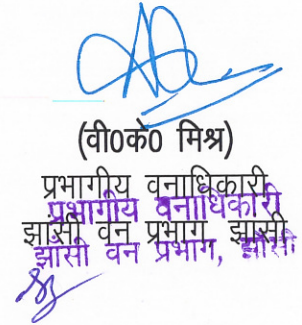 (वी0के0 मिश्र)
प्रभागीय वनाधिकारी
प्रभागीय वनाधिकारी
झांसी वन प्रभाग झांसी
झाँसी वन प्रभाग, झाँसी